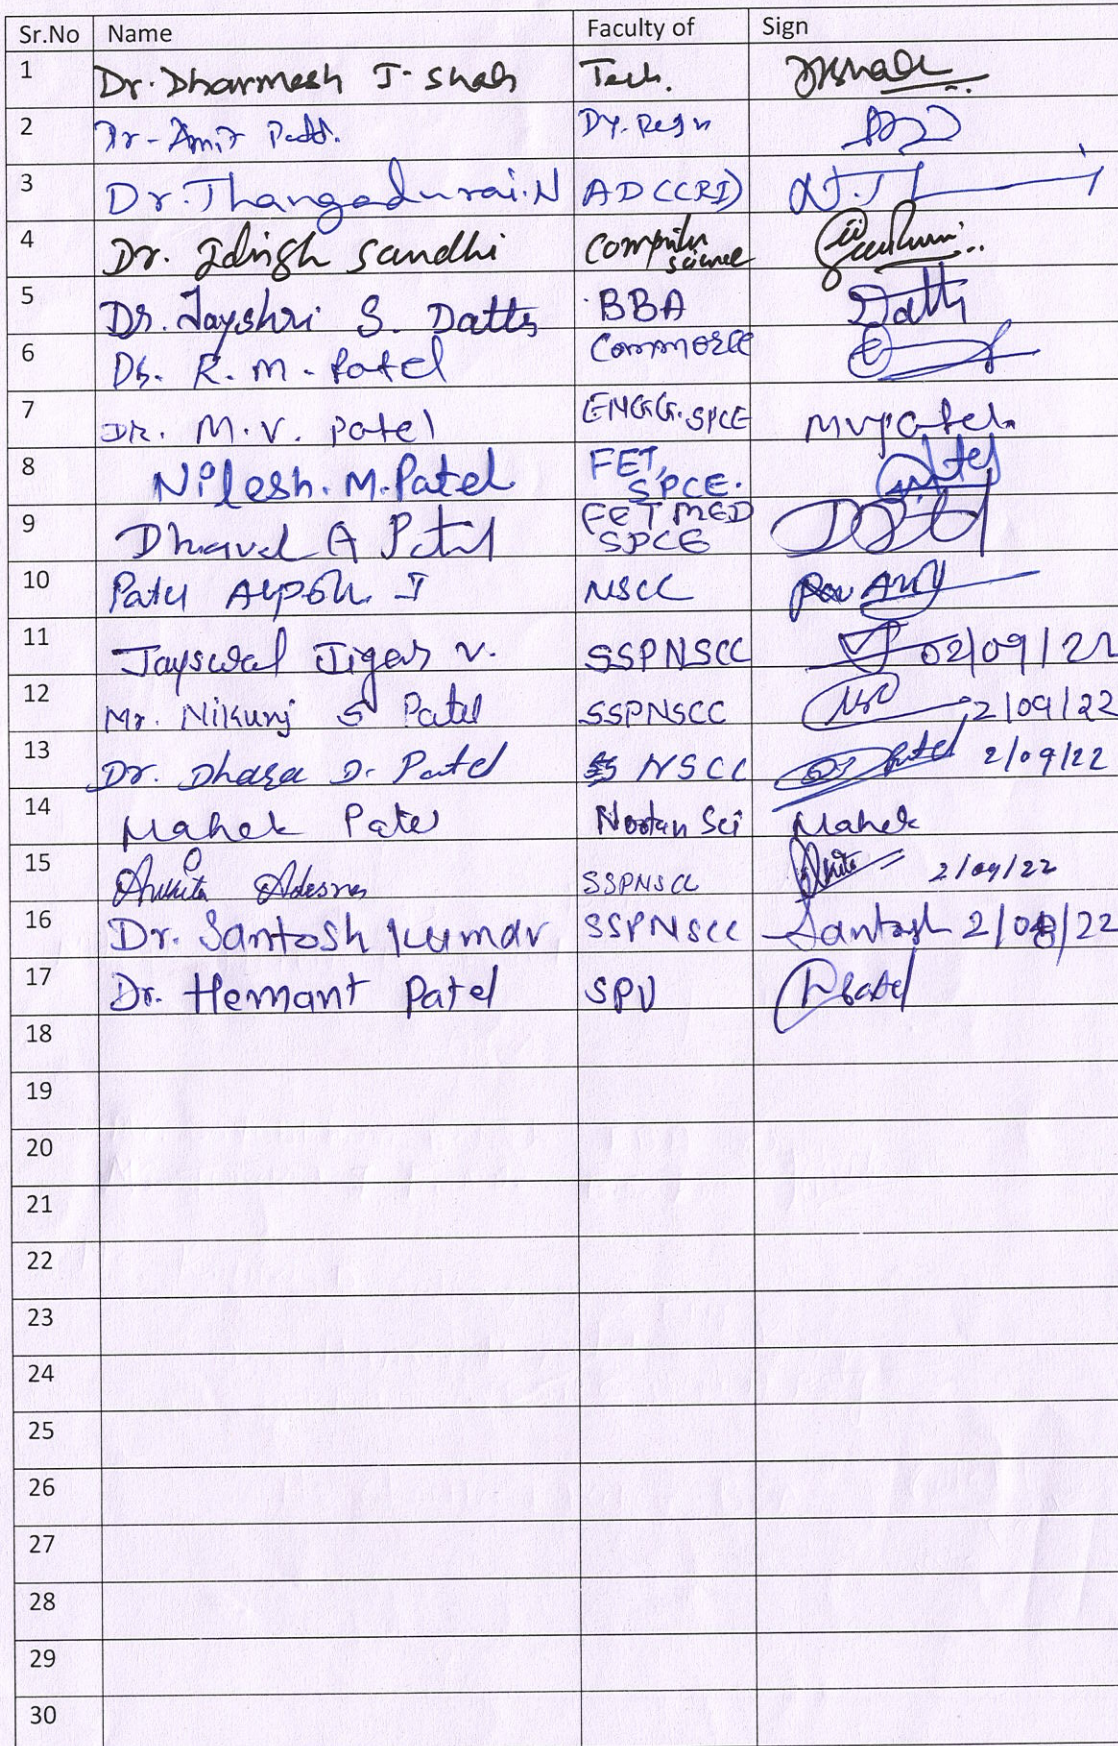 Sr.No Name Faculty of Sign
1 Dr. Dharmesh J. Shah Tech.
2 Dr. Amit Patel. Dy. Regn
3 Dr. Thangadurai. N AD (CRI) N.T
4 Dr. Idrish Sandhi Computer science
5 Dr. Jayshri S. Datta BBA Datta
6 Dr. R. M. Patel Commerce
7 DR. M. V. Patel ENGG. SPCE mvpatel.
8 Nilesh. M. Patel FET, SPCE.
9 Dhaval A Patel FET MED SPCE
10 Patel I NSCC
11 Jayswal Jigar V. SSPNSCC 02/09/22
12 Mr. Nikunj S Patel SSPNSCC 2/09/22
13 Dr. Dhara D. Patel NSCC 2/09/22
14 Mahek Patel Nootan Sci Mahek
15 Ankita SSPNSCC 2/09/22
16 Dr. Santosh Kumar SSPNSCC Santosh 2/09/22
17 Dr. Hemant Patel SPV
18
19
20
21
22
23
24
25
26
27
28
29
30